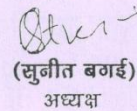 (सुनीत बगई)
अध्यक्ष